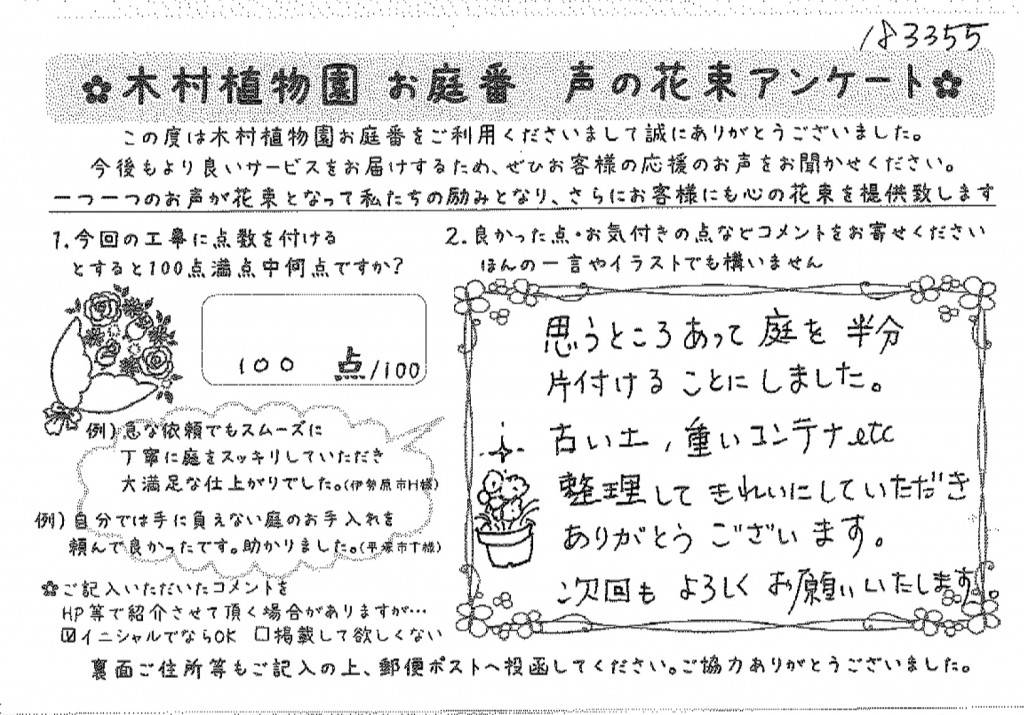 183355
✿木村植物園 お庭番 声の花束アンケート✿
この度は木村植物園お庭番をご利用くださいまして誠にありがとうございました。
今後もより良いサービスをお届けするため、ぜひお客様の応援のお声をお聞かせください。
一つ一つのお声が花束となって私たちの励みとなり、さらにお客様にも心の花束を提供致します
1.今回の工事に点数を付ける
とすると100点満点中何点ですか?
100 点/100
例)急な依頼でもスムーズに
丁寧に庭をスッキリしていただき
大満足な仕上がりでした。(伊勢原市H様)
例)自分では手に負えない庭のお手入れを
頼んで良かったです。助かりました。(平塚市T様)
✿ご記入いただいたコメントを
HP等で紹介させて頂く場合がありますが…
☑イニシャルでならOK □掲載して欲しくない
2.良かった点・お気付きの点などコメントをお寄せください
ほんの一言やイラストでも構いません
思うところあって庭を半分
片付けることにしました。
古い土,重いコンテナetc
整理してきれいにしていただき
ありがとうございます。
次回もよろしくお願いいたします
裏面ご住所等もご記入の上、郵便ポストへ投函してください。ご協力ありがとうございました。